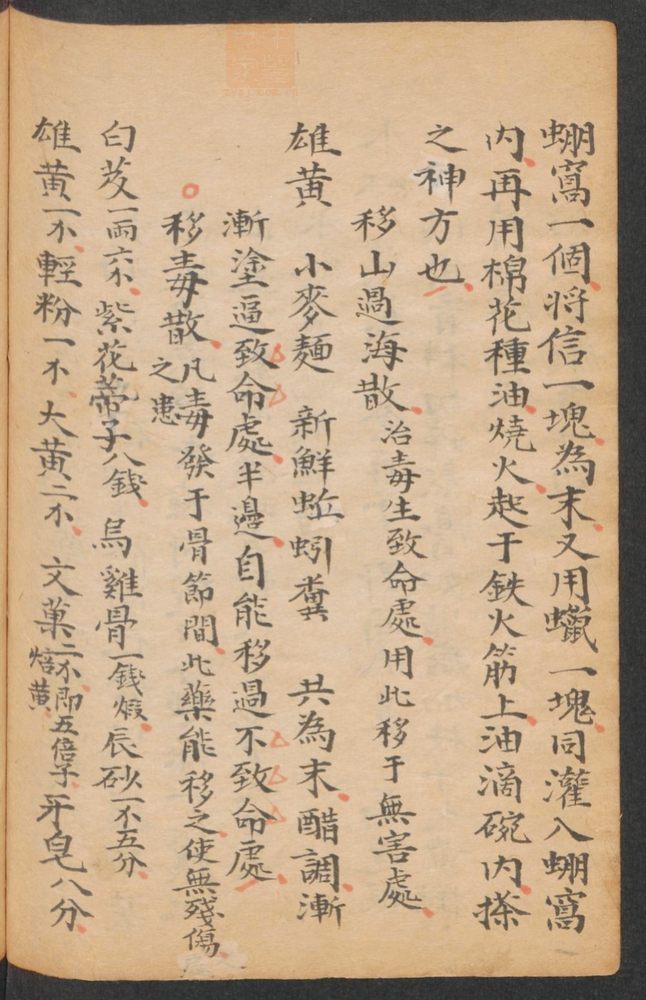 蜅窩一個將信一塊為末又用蠟一塊同灌入蜅窩
內再用棉花種油燒火起于鉄火筋上油滴碗內搽
之神方也
移山過海散 治毒生致命處用此移于無害處
雄黃 小麥麵 新鮮蚯蚓糞 共為末醋調漸
漸塗逼致命處半邊自能移過不致命處
移毒散 凡毒發于骨節間此藥能移之使無殘傷
之患
白芨一兩六不 紫花蒂子八錢 烏雞骨一錢煅 辰砂一不五分
雄黃一不 輕粉一不 大黃二不 文菓二不即五倍子焙黃 牙皂八分